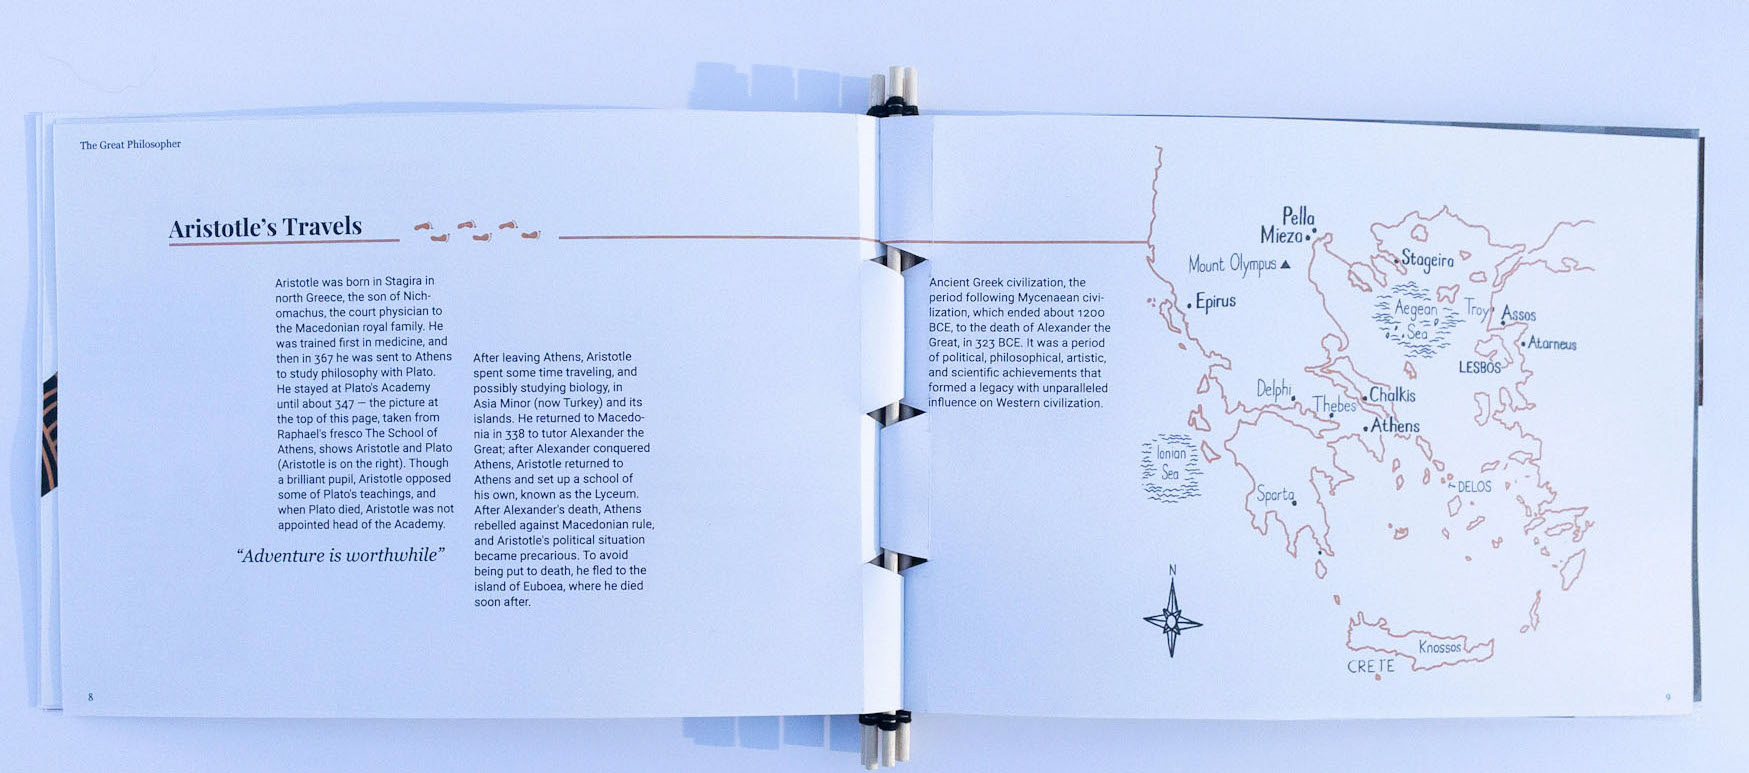 The Great Philosopher
Aristotle's Travels
Aristotle was born in Stagira in
north Greece, the son of Nich-
omachus, the court physician to
the Macedonian royal family. He
was trained first in medicine, and
then in 367 he was sent to Athens
to study philosophy with Plato.
He stayed at Plato's Academy
until about 347 — the picture at
the top of this page, taken from
Raphael's fresco The School of
Athens, shows Aristotle and Plato
(Aristotle is on the right). Though
a brilliant pupil, Aristotle opposed
some of Plato's teachings, and
when Plato died, Aristotle was not
appointed head of the Academy.
“Adventure is worthwhile”
After leaving Athens, Aristotle
spent some time traveling, and
possibly studying biology, in
Asia Minor (now Turkey) and its
islands. He returned to Macedo-
nia in 338 to tutor Alexander the
Great; after Alexander conquered
Athens, Aristotle returned to
Athens and set up a school of
his own, known as the Lyceum.
After Alexander's death, Athens
rebelled against Macedonian rule,
and Aristotle's political situation
became precarious. To avoid
being put to death, he fled to the
island of Euboea, where he died
soon after.
8
Ancient Greek civilization, the
period following Mycenaean civi-
lization, which ended about 1200
BCE, to the death of Alexander the
Great, in 323 BCE. It was a period
of political, philosophical, artistic,
and scientific achievements that
formed a legacy with unparalleled
influence on Western civilization.
Pella
Mieza
Mount Olympus
Stageira
Epirus
Aegean
Sea
Troy
Assos
Atarneus
LESBOS
Delphi
Thebes
Chalkis
Athens
Ionian
Sea
Sparta
DELOS
N
Knossos
CRETE
9